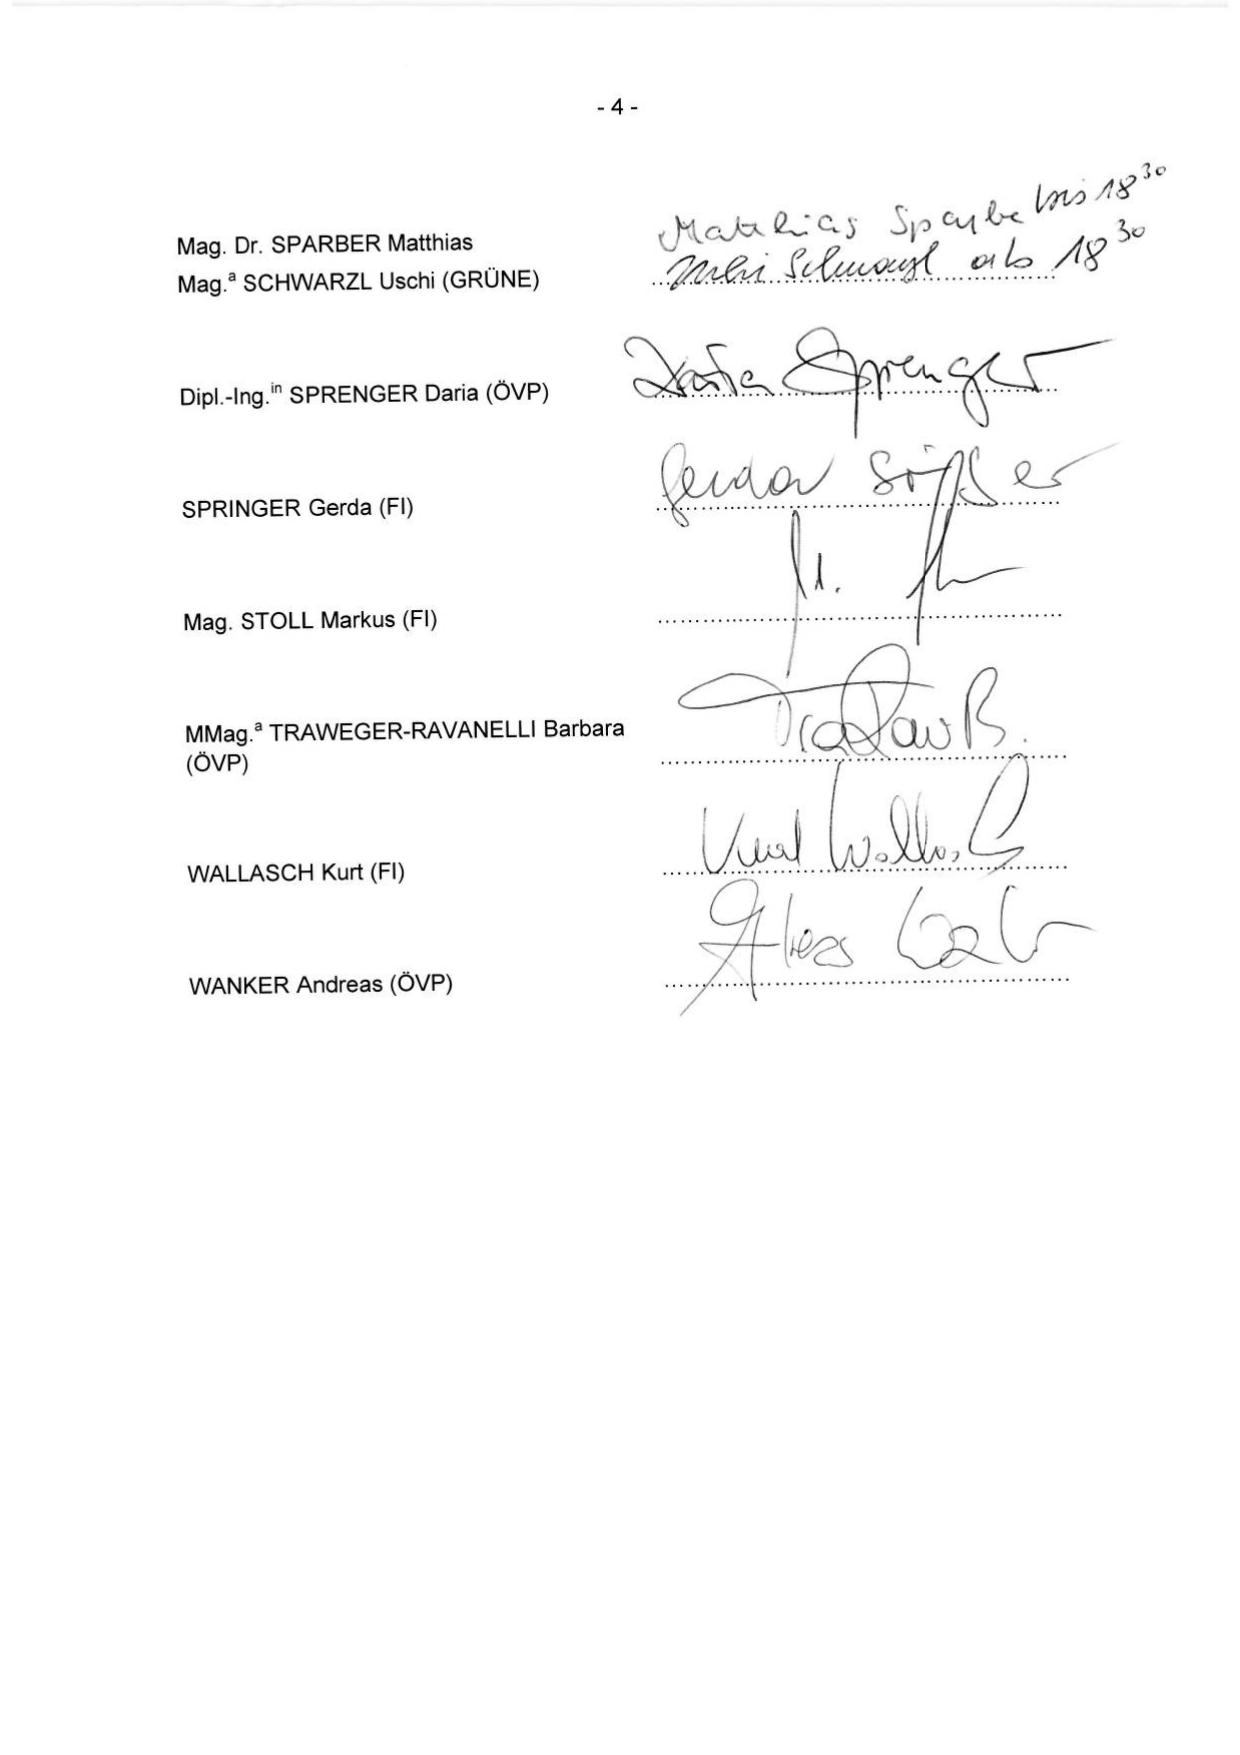 - 4 -
Mag. Dr. SPARBER Matthias
Matthias Sparber bis 18³⁰
Mag.ᵃ SCHWARZL Uschi (GRÜNE)
Uschi Schwarzl ab 18³⁰
Dipl.-Ing.ⁱⁿ SPRENGER Daria (ÖVP)
Daria Sprenger
SPRINGER Gerda (FI)
Gerda
Mag. STOLL Markus (FI)
M.
MMag.ᵃ TRAWEGER-RAVANELLI Barbara
(ÖVP)
WALLASCH Kurt (FI)
Kurt Wallasch
WANKER Andreas (ÖVP)